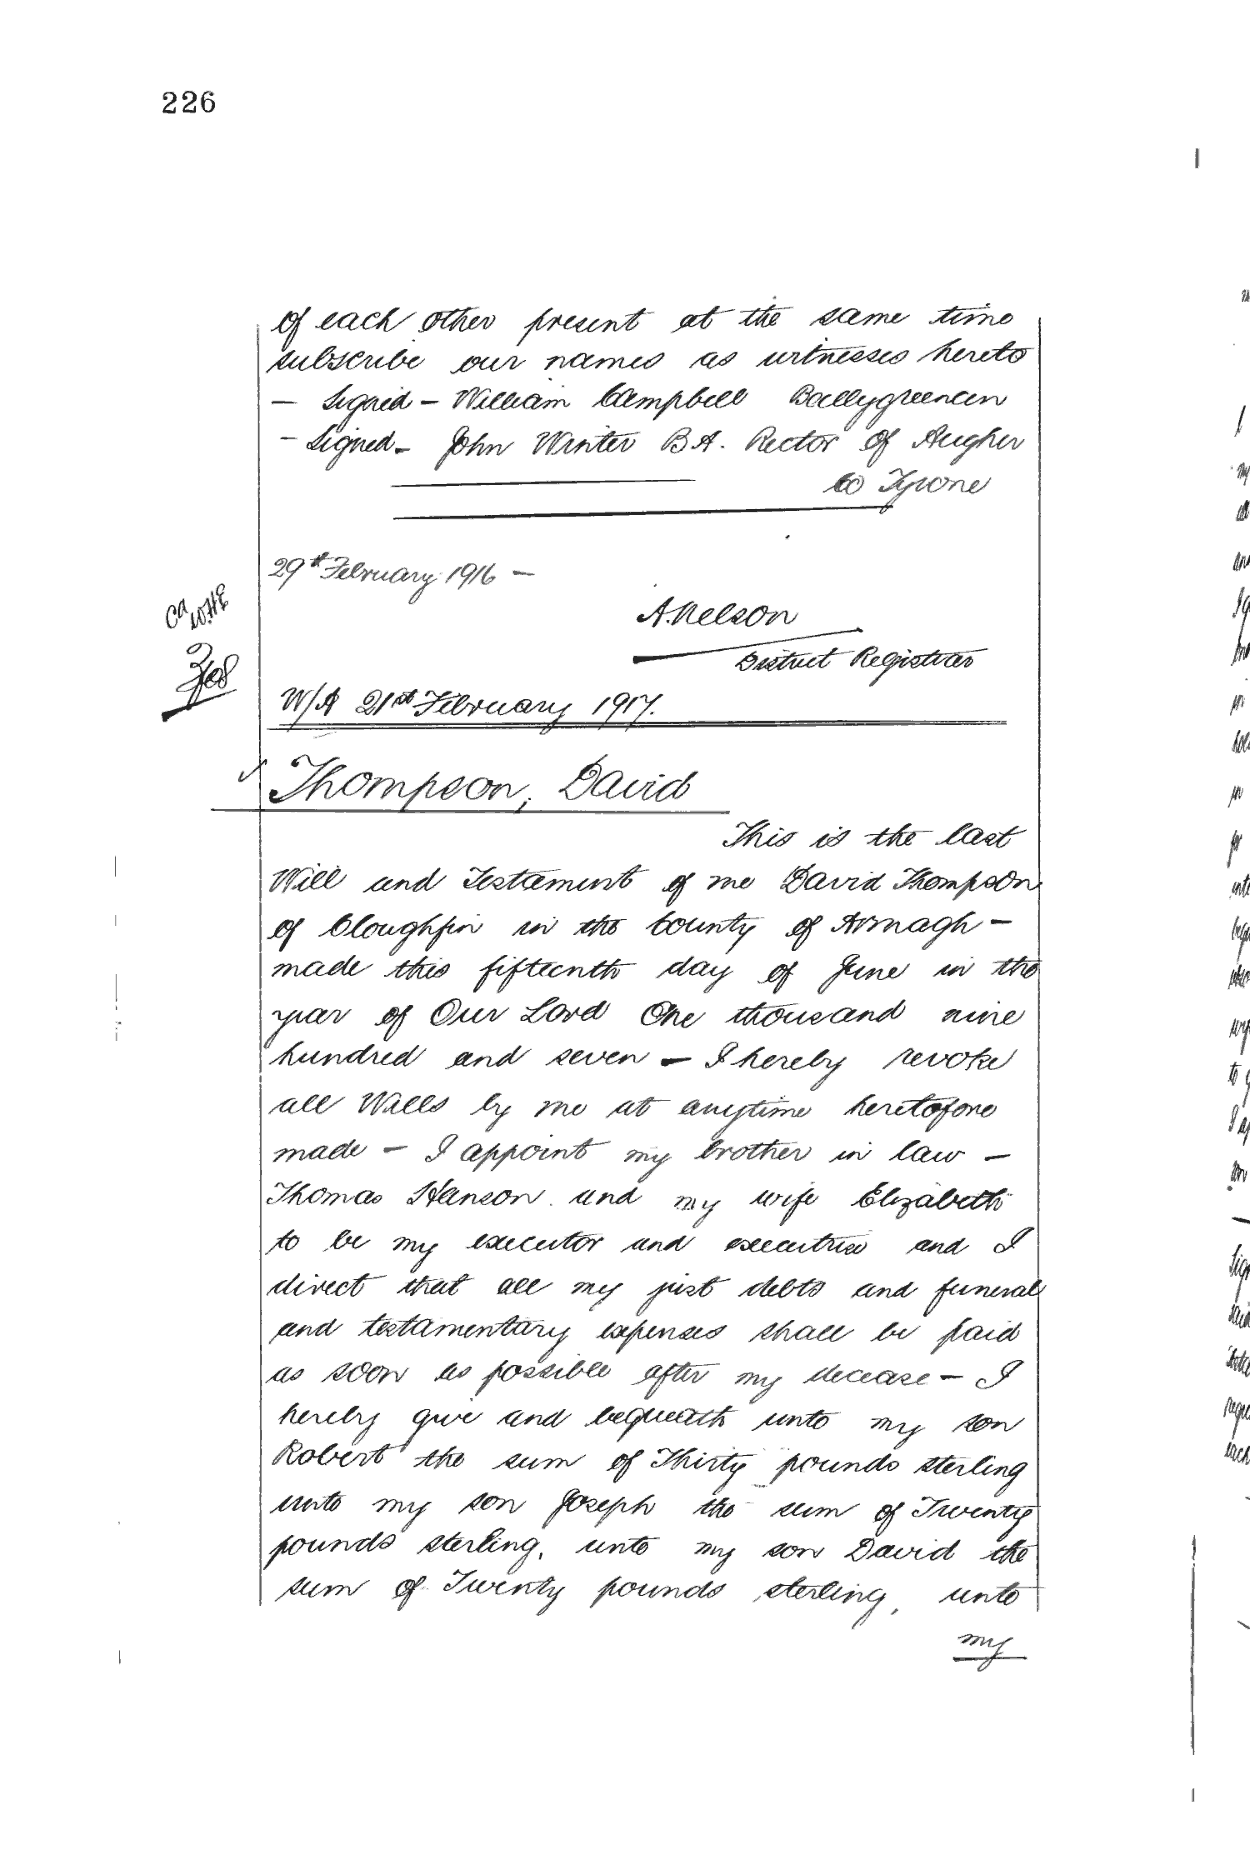 226
of each other present at the same time
subscribe our names as witnesses hereto
— Signed — William Campbell Ballygreenan
— Signed — John Winter B A. Rector of Augher
Co Tyrone
29th February 1916 —
A. Nelson
District Registrar
W/A 21st February 1917.
Thompson, David
This is the last
Will and Testament of me David Thompson
of Cloughfin in the County of Armagh —
made this fifteenth day of June in the
year of Our Lord One thousand nine
hundred and seven — I hereby revoke
all Wills by me at anytime heretofore
made — I appoint my brother in law —
Thomas Hanson and my wife Elizabeth
to be my executor and executrix and I
direct that all my just debts and funeral
and testamentary expenses shall be paid
as soon as possible after my decease — I
hereby give and bequeath unto my son
Robert the sum of Thirty pounds sterling
unto my son Joseph the sum of Twenty
pounds sterling, unto my son David the
sum of Twenty pounds sterling, unto
my